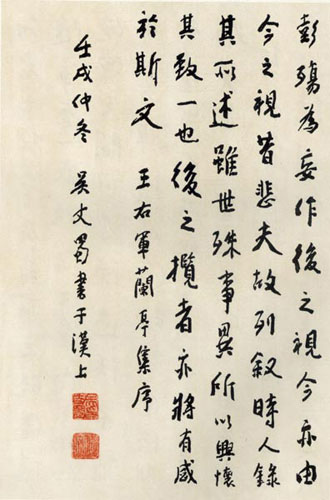 彭殤為妄作後之視今亦由
今之視昔悲夫故列叙時人錄
其所述雖世殊事異所以興懷
其致一也後之攬者亦將有感
於斯文 王右軍蘭亭集序
壬戌仲冬 吴丈蜀書于漢上